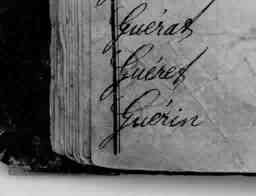 Guérat
Guéret
Guérin